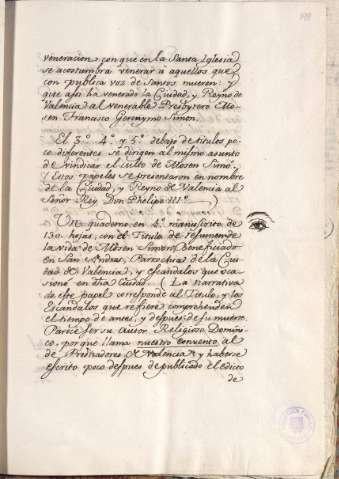 veneracion, con que en la Santa Iglesia
se acostumbra venerar à aquellos que
con publica voz de Santos mueren: y
que assi ha venerado la Ciudad, y Reyno de
Valencia al venerable Presbytero Mo-
sen Francisco Geronymo Simon.
El 3.º 4.º y 5.º debajo de titulos po-
co diferentes se dirigen al mismo asunto
de vindicar el culto de Mosen Simo.
(Estos papeles se presentaron en nombre
de la Ciudad, y Reyno de Valencia al
Señor Rey Don Phelipe III.º)
Un quaderno en 4.º manuscrito de
130 hojas, con el Titulo de resumen de
la vida de Mosen Simon (Beneficiado
en San Andres, Parrochia de la Ciu-
dad de Valencia) y escandalos que oca-
sionò en dicha Ciudad. (La narrativa
de este papel corresponde al Titulo, y los
Escandalos que refiere comprehenden
el tiempo de antes, y despues de su muerte.
Parece ser su Autor Religioso Domini-
co, porque llama nuestro convento al
de Predicadores de Valencia, y haberse
escrito poco despues de publicado el edicto
de